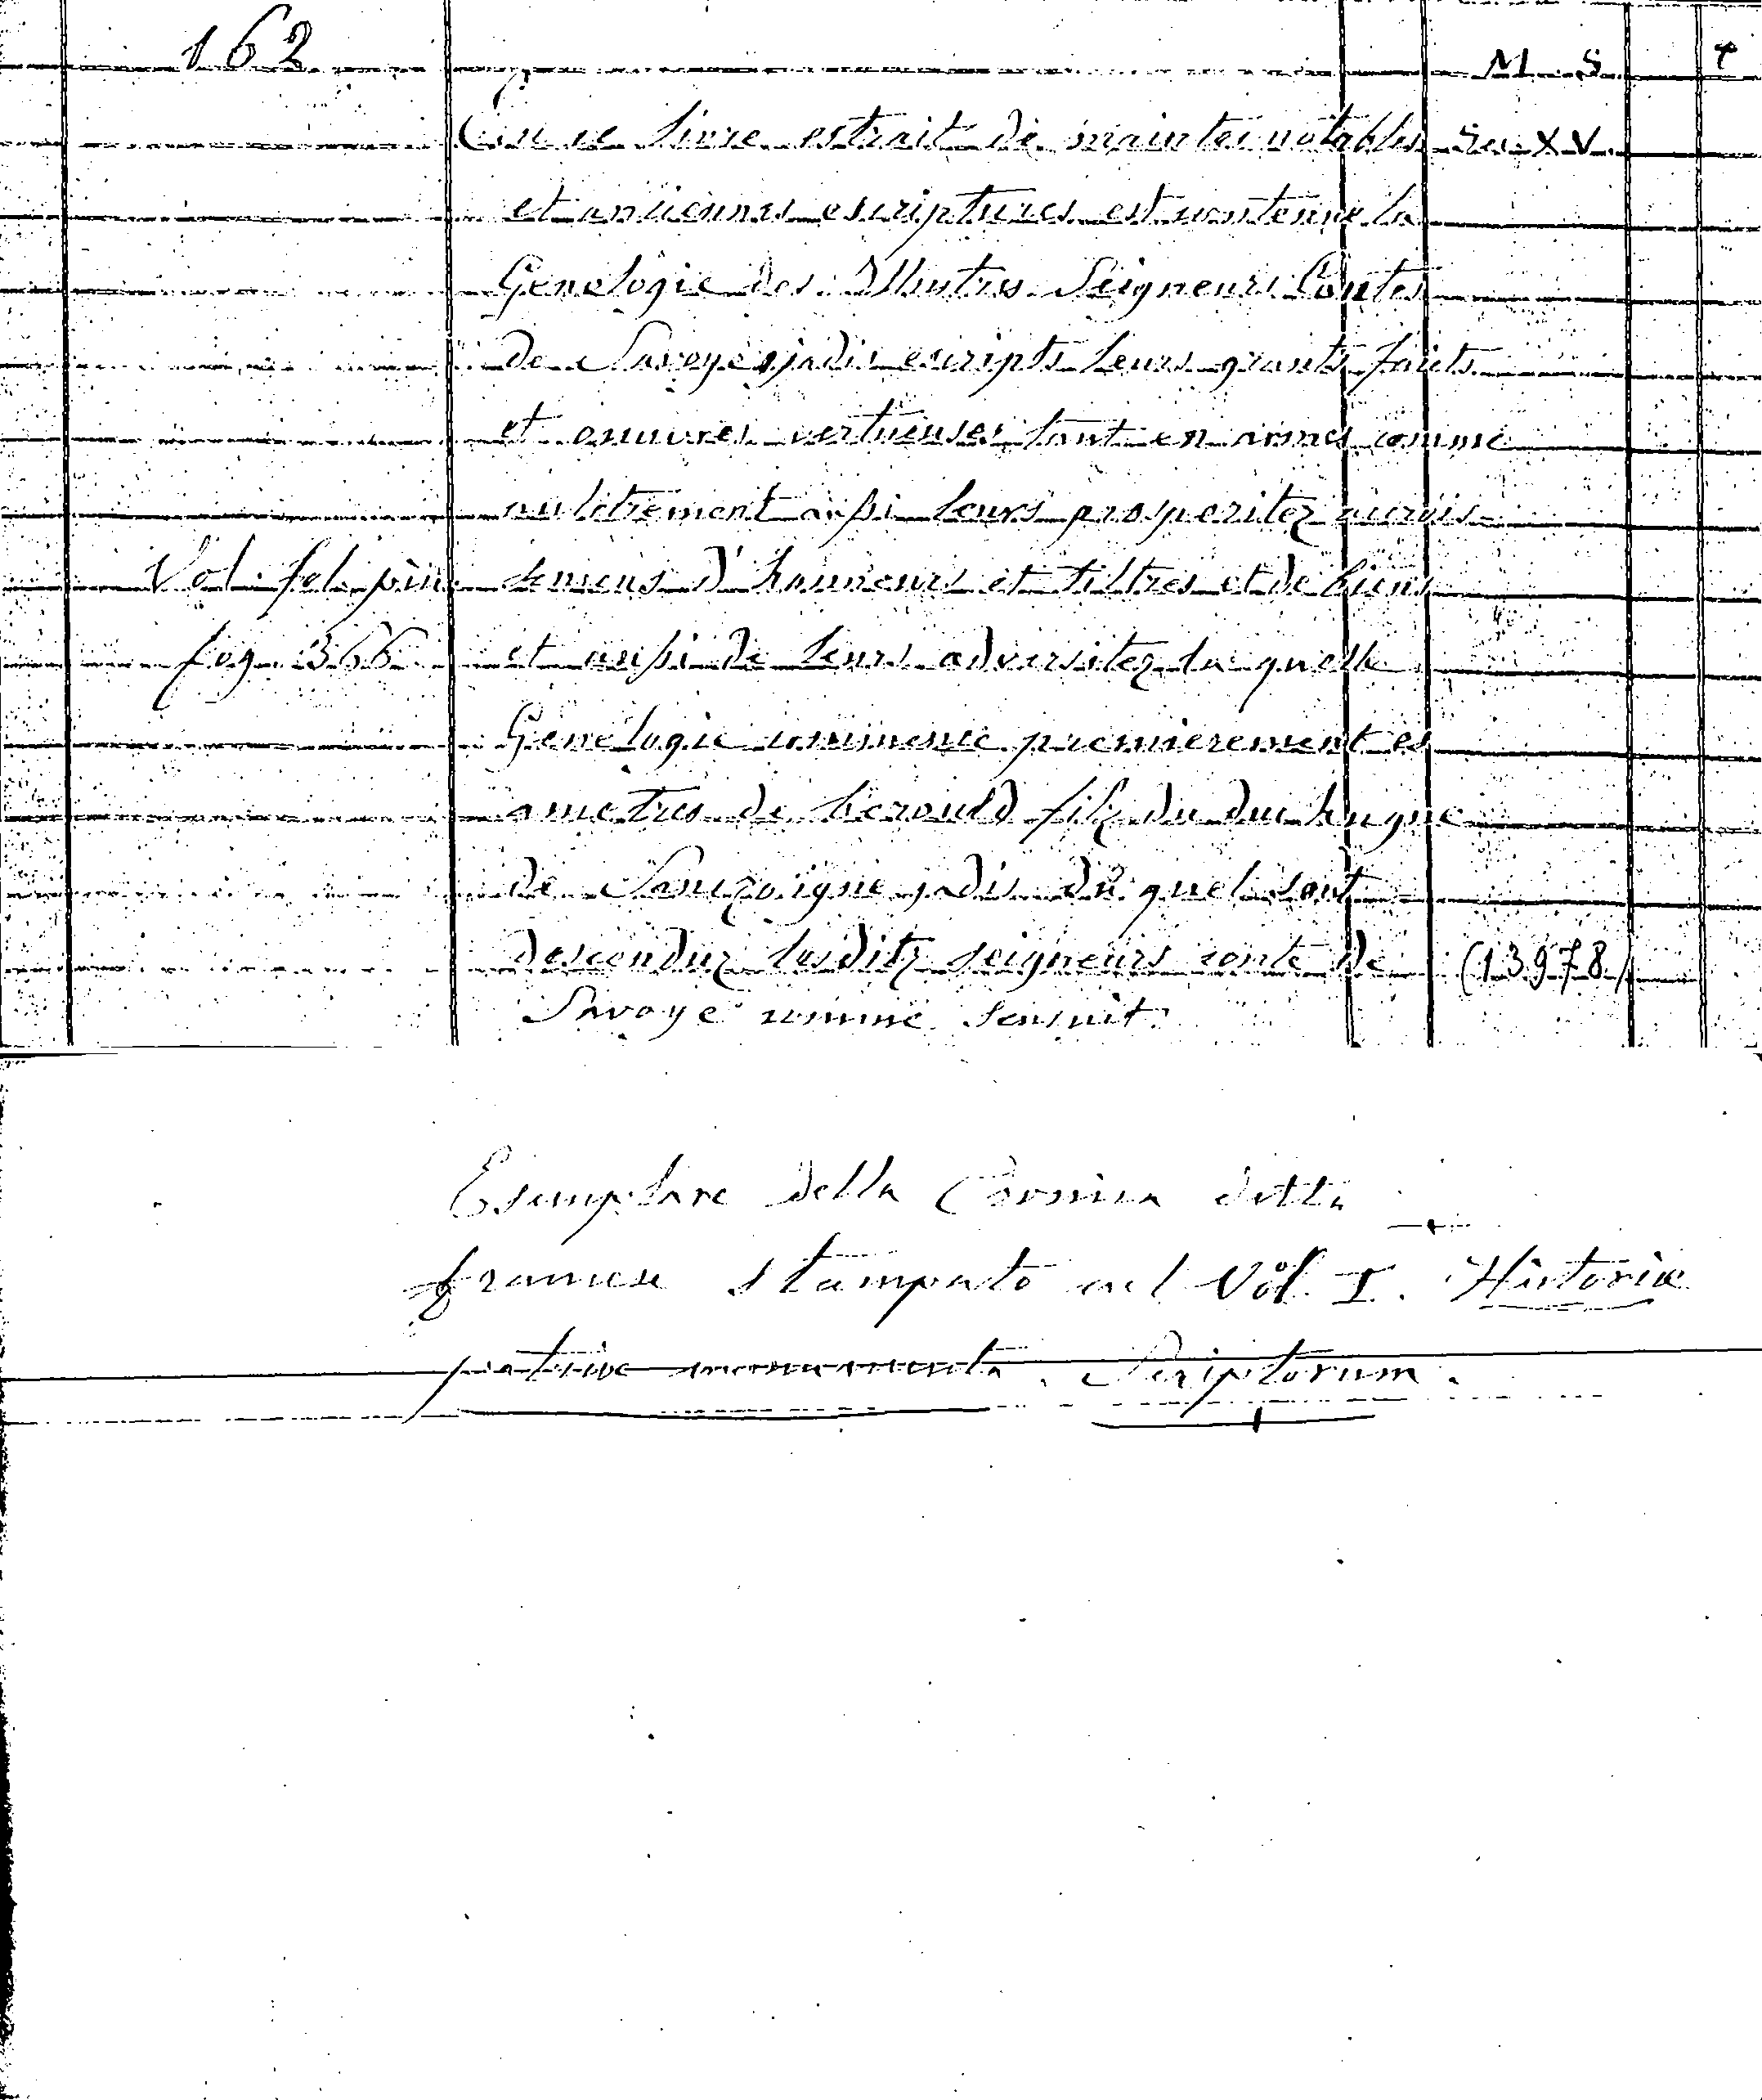 162 M. S.
En ce livre estrait de maintes notables Sec. XV.
et anciennes escriptures est contenue la
Genelogie des Illustres Seigneurs Contes
de Savoye jadis escripts leurs grants faicts
et ouuvres vertueuses tant en armes comme
aultrement aussi leurs prosperitez acrois
Vol. fol. picc. semens d'honneurs et tiltres et de biens
fog. 366 et aussi de leurs adversitez la quelle
Genelogie commence premierement es
ancetres de berould filz du duc hugue
de Sanczoigne jadis du quel sont
descenduz lesditz seigneurs conte de (13978)
Savoye comme sensuit.
Esemplare della Cronica detta
francese stampato nel Vol. I. Historiæ
patriae monumenta. Scriptorum.